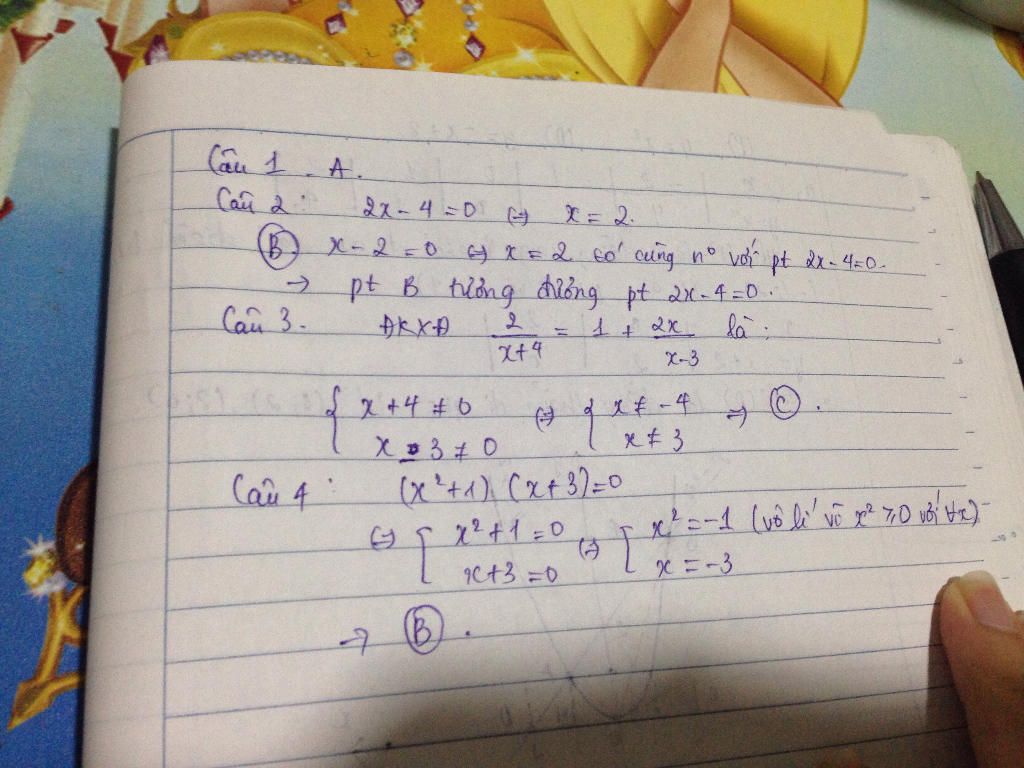 Câu 1. A.
Câu 2: 2x - 4 = 0 (=) x = 2.
B. x - 2 = 0 (=) x = 2 có cùng n° với pt 2x - 4 = 0.
→ pt B tương đương pt 2x - 4 = 0.
Câu 3. ĐKXĐ 2/(x+4) = 1 + 2x/(x-3) là:
{ x + 4 ≠ 0 (=) { x ≠ -4 => C.
x - 3 ≠ 0 x ≠ 3
Câu 4: (x²+1) (x+3) = 0
(=) [ x² + 1 = 0 (=) [ x² = -1 (vô lí vì x² ≥ 0 với ∀x)
x + 3 = 0 x = -3
→ B.